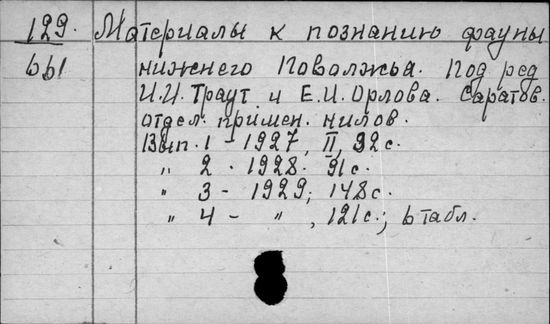 129. Материалы к познанию фауны
661 нижнего Поволжья. Под ред
И.И. Траут и Е.И. Орлова. Саратов.
отдел. примен.
Вып. 1 - 1927, II, 92 с.
" 2 - 1928. 91 с.
" 3 - 1929; 148 с.
" 4 - " , 121 с.; 6 табл.